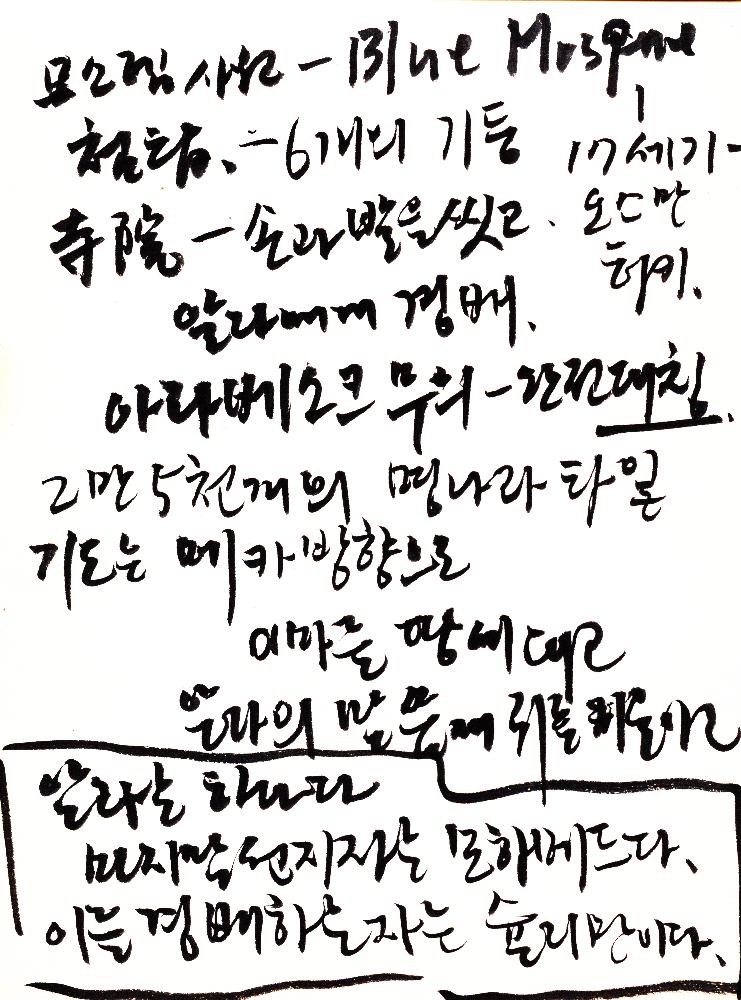 모스크 사원 - Blue Mosque
첨탑. - 6개의 기둥
17세기 -
오스만
터키.
寺院 - 손과 발을 씻고.
알라에게 경배.
아라베스크 무늬 - 완전대칭.
2만 5천개의 명나라 타일
기도는 메카방향으로
이마를 땅에 대고
알라의 말씀에 귀를 기울이고
알라는 하나다
마지막 선지자는 모하메드다.
이를 경배하는 자는 슐리만이다.